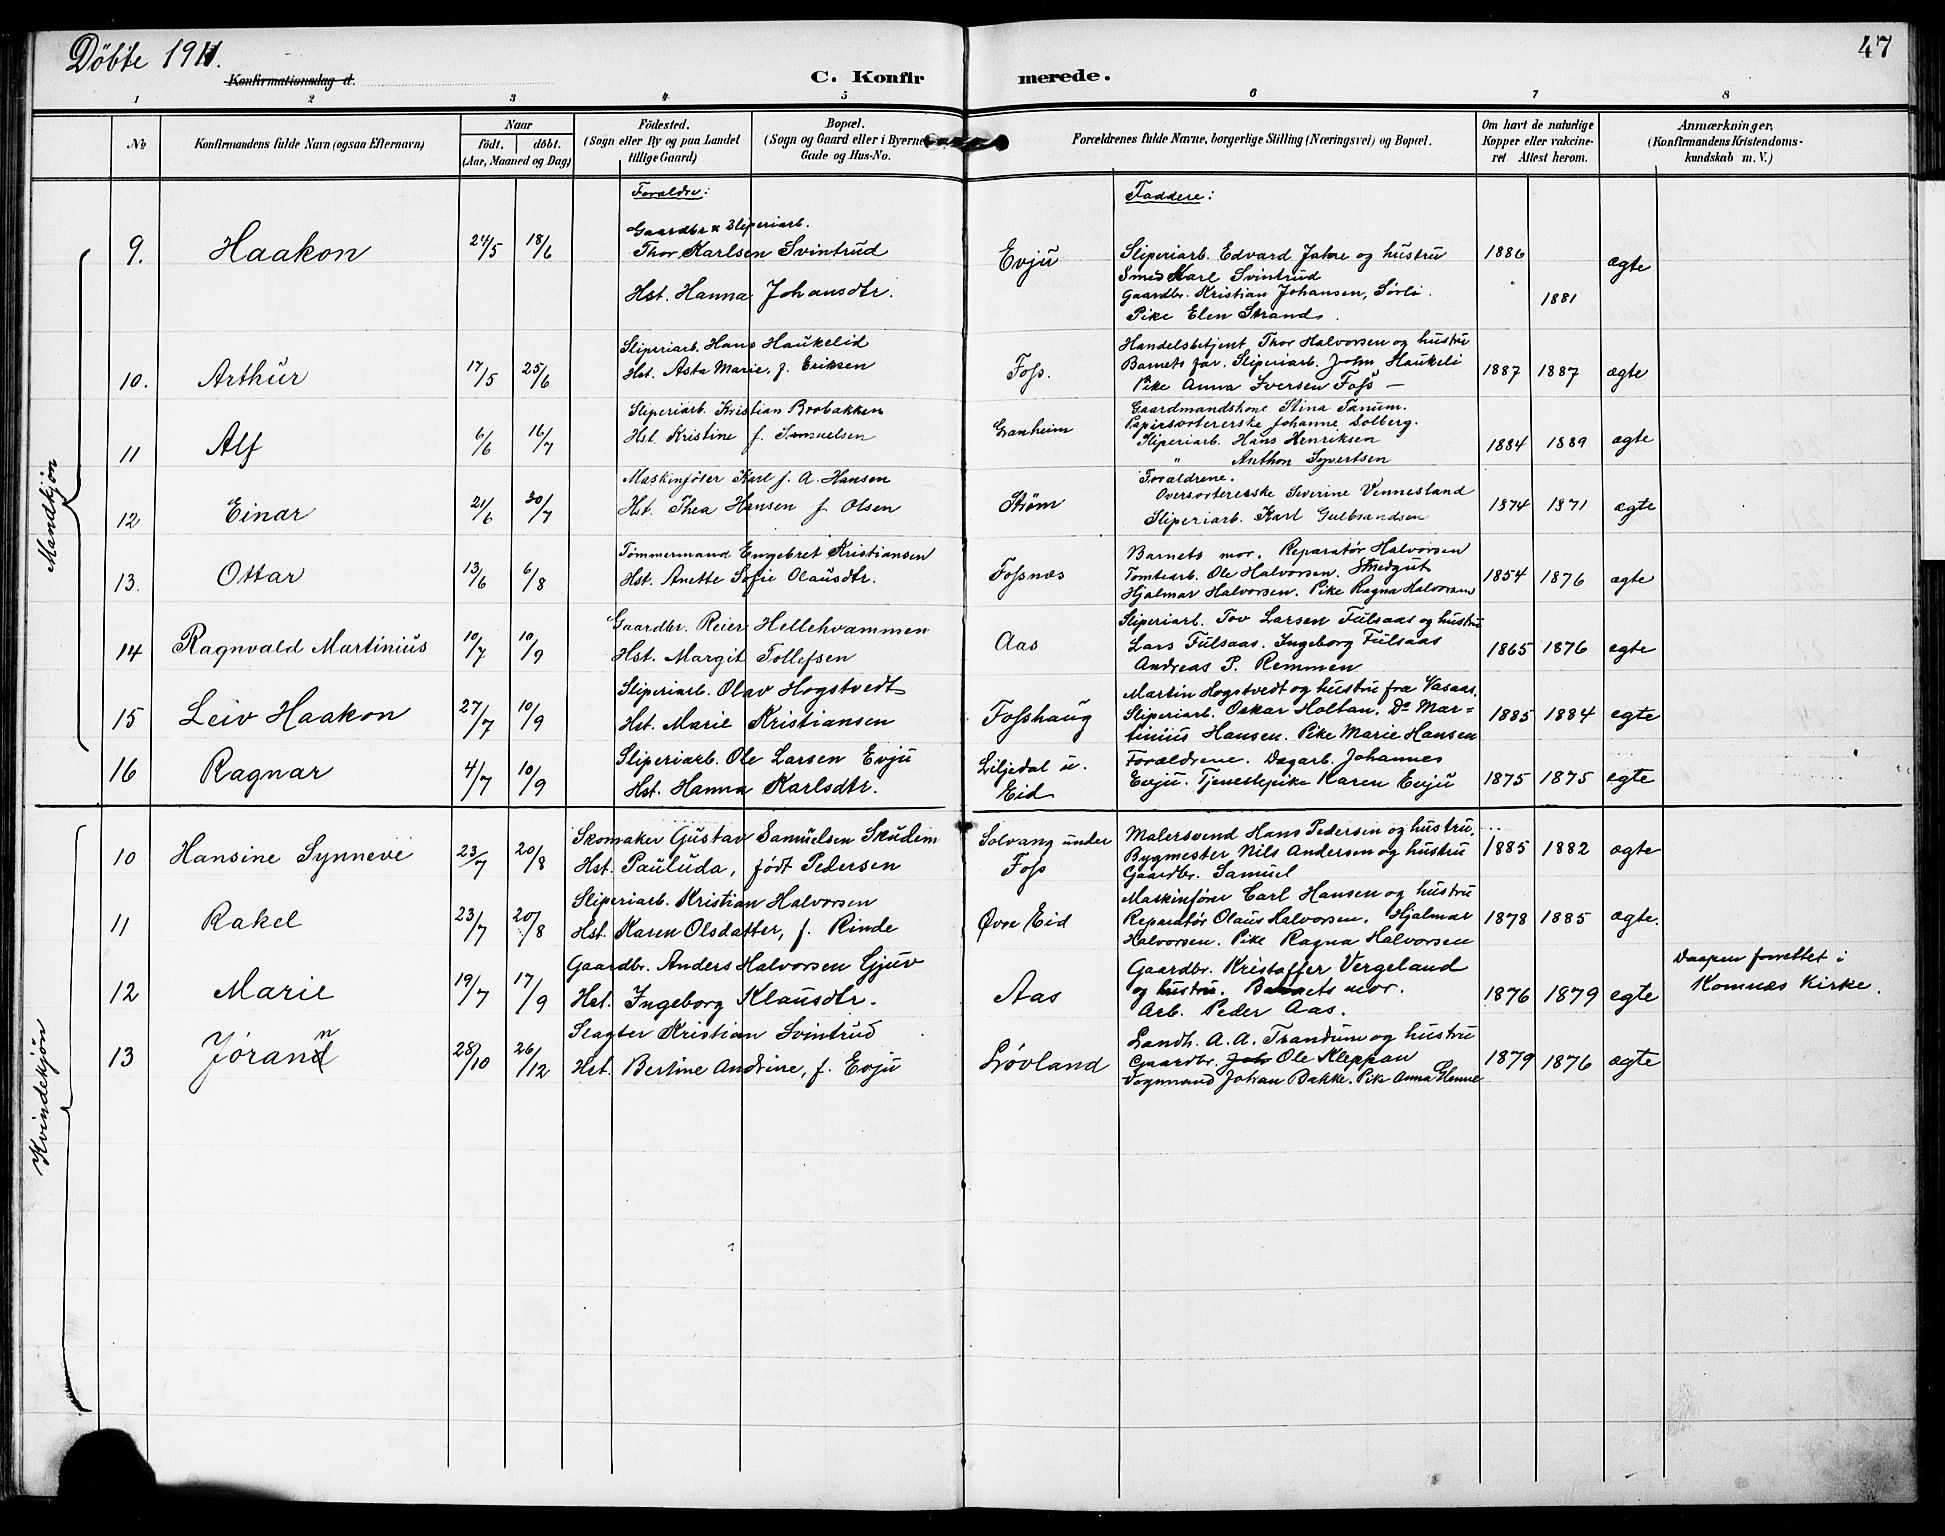 Döbte 1911.
47
Konfirmationsdag d.
C. Konfirmerede.
1 2 3 4 5 6 7 8
No
Konfirmandens fulde Navn (ogsaa Efternavn)
Naar
födt. döbt.
(Aar, Maaned og Dag)
Födested.
(Sogn eller By og paa Landet
tillige Gaard)
Bopæl.
(Sogn og Gaard eller i Byerne
Gade og Hus-No.
Forældrenes fulde Navne, borgerlige Stilling (Næringsvei) og Bopæl.
Om havt de naturlige
Kopper eller vakcine-
ret Attest herom.
Anmærkninger,
(Konfirmandens Kristendoms-
kundskab m. V.)
Forældre:
Faddere:
Mandkjön
9. Haakon 24/5 18/6
Gaardbr & Sliperiarb.
Thor Karlsen Svintrud
Hst. Hanna Johansdtr.
Evju
Sliperiarb. Edvard Jahre og hustru
Smed Karl Svintrud
Gaardbr. Kristian Johansen, Sørli.
Pike Elen Strands.
1886 1881 ægte
10. Arthur 17/5 25/6
Sliperiarb. Hans Haukelid
Hst. Asta Marie, f. Eriksen
Foss.
Handelsbetjent Thor Halvorsen og hustru
Barnets far. Sliperiarb. John Haukeli
Pike Anna Iversen Foss —
1887 1887 ægte
11 Alf 6/6 16/7
Sliperiarb. Kristian Brobakken
Hst. Kristine f. Samuelsen
Granheim
Gaardmandskone Stina Tanum.
Papirsortererske Johanne Solberg.
Sliperiarb. Hans Henriksen
" Anthon Syvertsen
1884 1889 ægte
12 Einar 21/6 30/7
Maskinfører Karl f. A. Hansen
Hst. Thea Hansen f. Olsen
Strøm
Forældrene.
Oversortererske Severine Vennesland
Sliperiarb. Karl Gulbrandsen
1874 1871 ægte
13. Ottar 13/6 6/8
Tømmermand Engebret Kristiansen
Hst. Anette Sofie Olausdtr.
Fossnæs
Barnets mor. Reparatør Halvorsen
Tomtearb. Ole Halvorsen. Smedgut
Hjalmar Halvorsen. Pike Ragna Halvorsen
1854 1876 ægte
14 Ragnvald Martinius 10/7 10/9
Gaardbr. Reier Hellekvammen
Hst. Margit Tollefsen
Aas
Sliperiarb. Tov Larsen Fulsaas og hustru
Lars Fulsaas. Ingeborg Fulsaas
Andreas P. Remmen
1865 1876 egte
15 Leiv Haakon 27/7 10/9
Sliperiarb. Olav Hogstvedt
Hst. Marie Kristiansen
Fosshaug
Martin Hogstvedt og hustru fra Vasaas.
Sliperiarb. Oskar Holtan. Do Mar=
tinius Hansen. Pike Marie Hansen
1885 1884 egte
16 Ragnar 4/7 10/9
Sliperiarb. Ole Larsen Evju
Hst. Hanna Karlsdtr.
Liljedal u.
Eid
Forældrene. Dagarb. Johannes
Evju. Tjenestepike Karen Evju
1875 1875 egte
Kvindekjön
10 Hansine Synnevé 23/7 20/8
Skomaker Gustav Samuelsen Skudem
Hst. Pauluda, født Pedersen
Solvang under
Foss
Malersvend Hans Pedersen og hustru.
Bygmester Nils Andersen og hustru
Gaardbr. Samuel
1885 1882 ægte
11 Rakel 23/7 20/8
Sliperiarb. Kristian Halvorsen
Hst. Karen Olsdatter, f. Rinde
Øvre Eid
Maskinfører Carl Hansen og hustru
Reparatør Olaus Halvorsen. Hjalmar
Halvorsen. Pike Ragna Halvorsen
1878 1885 ægte.
12 Marie 19/7 17/9
Gaardbr. Anders Halvorsen Gjuv
Hst. Ingeborg Klausdtr.
Aas
Gaardbr. Kristoffer Vergeland
og hustru. Barnets mor.
Arb. Peder Aas.
1876 1879 egte
Daapen forrettet i
Komnæs Kirke.
13 Jørann 28/10 26/12
Slagter Kristian Svintrud
Hst. Bertine Andrine, f. Evju
Løvland
Landh. A. A. Trandum og hustru
Gaardbr. Joh Ole Kleppan
Vognmand Johan Bakke. Pike Anna Glenne
1879 1876 ægte